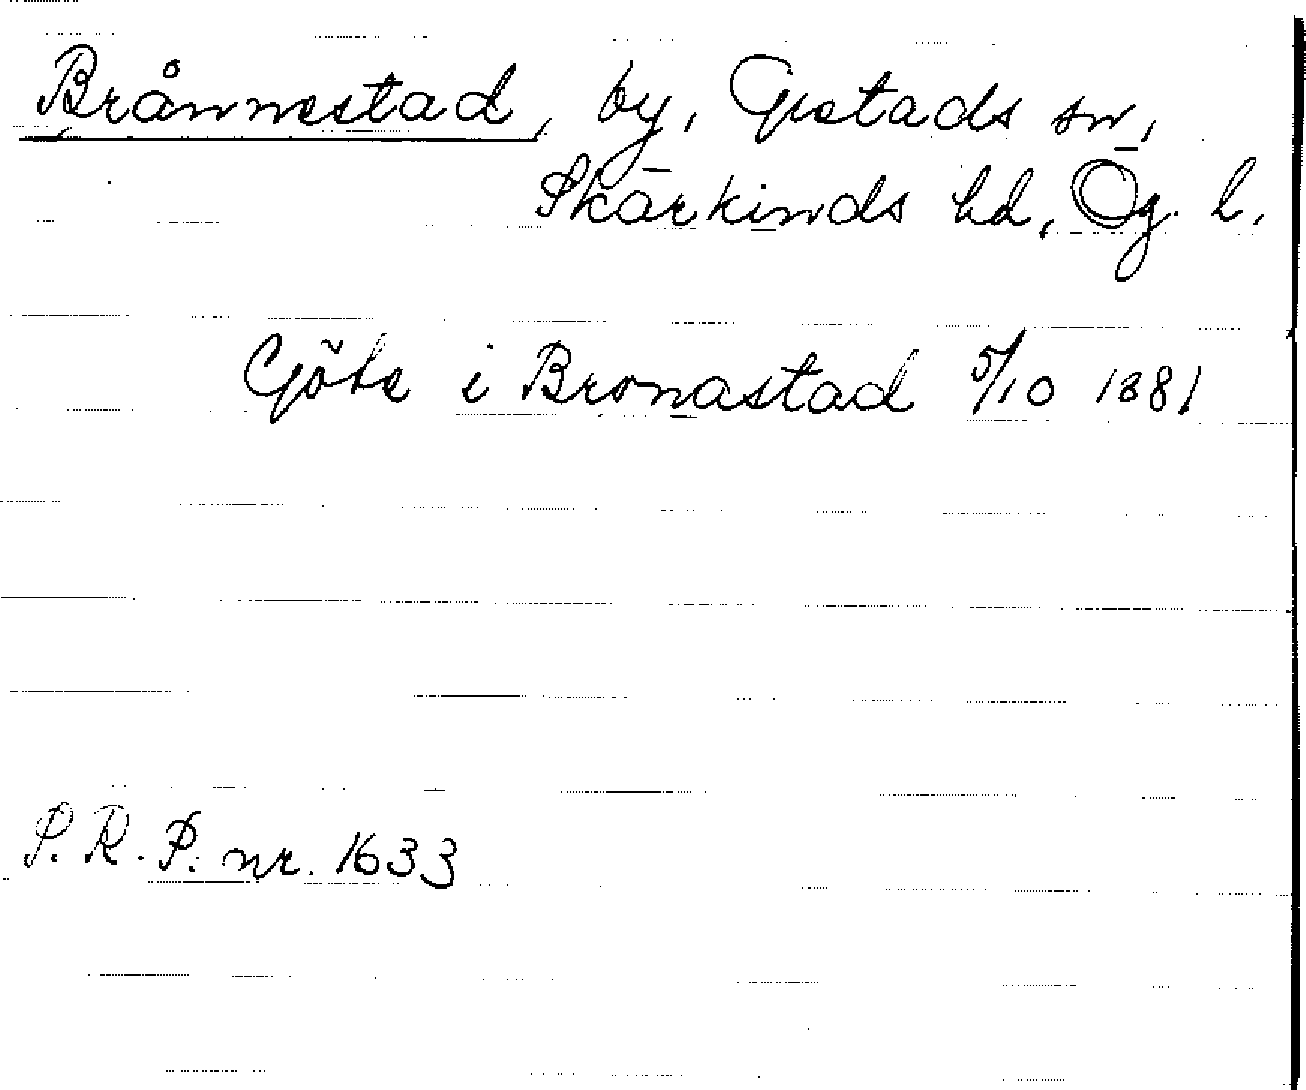 Brånnestad, by, Gistads sn,
Skärkinds hd, Ög. l.
Göte i Bronastad 5/10 1881
S. R. P. nr. 1633